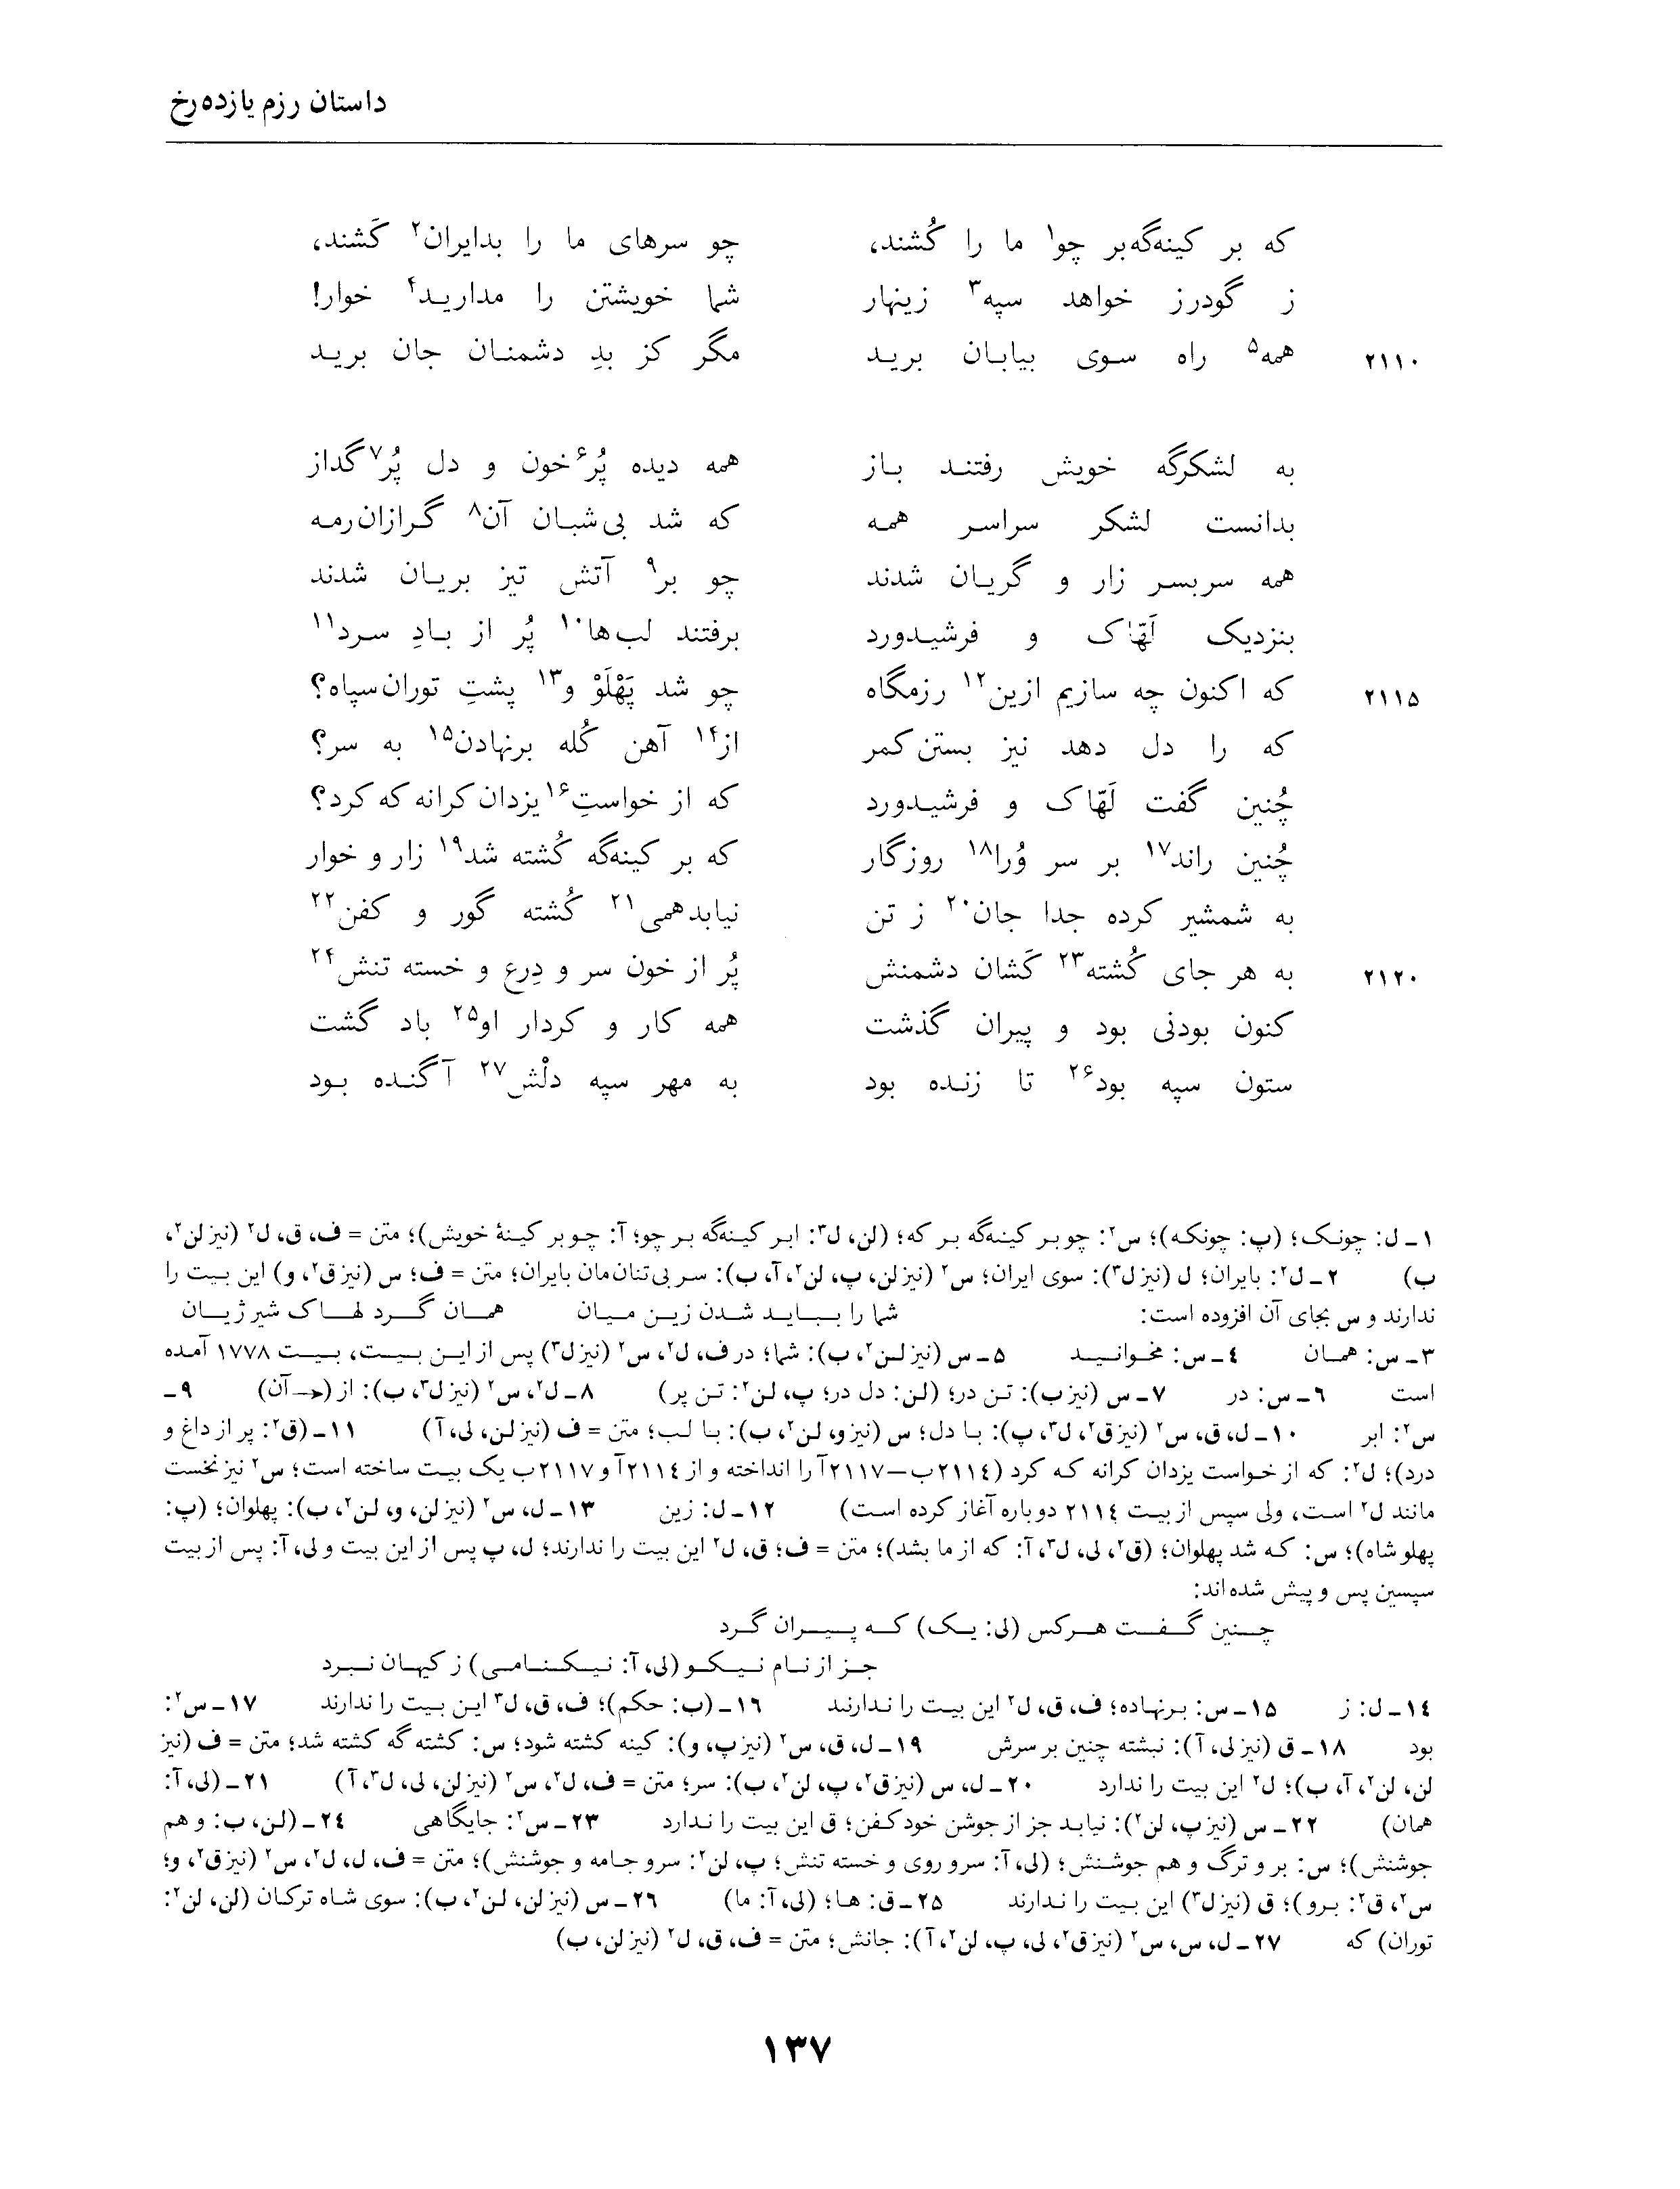 داستان رزم یازده‌رخ
که بر کینه‌گه‌بر چو۱ ما را کُشند، چو سرهای ما را بدایران۲ کَشند،
ز گودرز خواهد سپه۳ زینهار شما خویشتن را مدارید۴ خوار!
۲۱۱۰ همه۵ راه سوی بیابان برید مگر کز بدِ دشمنان جان برید
به لشکرگه خویش رفتند باز همه دیده پُر۶خون و دل پُر۷گداز
بدانست لشکر سراسر همه که شد بی‌شبان آن۸ گرازان‌رمه
همه سربسر زار و گریان شدند چو بر۹ آتش تیز بریان شدند
بنزدیک لَهّاک و فرشیدورد برفتند لب‌ها۱۰ پُر از بادِ سرد۱۱
۲۱۱۵ که اکنون چه سازیم ازین۱۲ رزمگاه چو شد پَهْلَوْ و۱۳ پشتِ توران‌سپاه؟
که را دل دهد نیز بستن‌کمر از۱۴ آهن کُله برنهادن۱۵ به سر؟
چُنین گفت لَهّاک و فرشیدورد که از خواستِ۱۶ یزدان کرانه که کرد؟
چُنین راند۱۷ بر سر وُرا۱۸ روزگار که بر کینه‌گه کُشته شد۱۹ زار و خوار
به شمشیر کرده جدا جان۲۰ ز تن نیابدهمی۲۱ کُشته گور و کفن۲۲
۲۱۲۰ به هر جای کُشته۲۳ کَشان دشمنش پُر از خون سر و دِرع و خسته تنش۲۴
کنون بودنی بود و پیران گذشت همه کار و کردار او۲۵ باد گشت
ستون سپه بود۲۶ تا زنده بود به مهر سپه دلْش۲۷ آگنده بود
۱ـ ل: چونک؛ (پ: چونکه)؛ س۲: چو بر کینه‌گه بر که؛ (لن، ل۳: ابر کینه‌گه بر چو؛ آ: چو بر کینهٔ خویش)؛ متن = ف، ق، ل۲ (نیز لن۲،
ب) ۲ـ ل۲: بایران؛ ل (نیز ل۳): سوی ایران؛ س۲ (نیز لن، پ، لن۲، آ، ب): سر بی‌تنان‌مان بایران؛ متن = ف؛ س (نیز ق۲، و) این بیت را
ندارند و س بجای آن افزوده است: شما را بباید شدن زین میان همان گرد لهاک شیر ژیان
۳ـ س: همان ۴ـ س: مخوانید ۵ـ س (نیز لن۲، ب): شما؛ در ف، ل۲، س۲ (نیز ل۳) پس از این بیت، بیت ۱۷۷۸ آمده
است ۶ـ س: در ۷ـ س (نیز ب): تن در؛ (لن: دل در؛ پ، لن۲: تن پر) ۸ـ ل۲، س۲ (نیز ل۳، ب): از (←آن) ۹ـ
س۲: ابر ۱۰ـ ل، ق، س۲ (نیز ق۲، ل۳، پ): با دل؛ س (نیز و، لن۲، ب): با لب؛ متن = ف (نیز لن، لی، آ) ۱۱ـ (ق۲: پر از داغ و
درد)؛ ل۲: که از خواست یزدان کرانه که کرد (۲۱۱۴ب–۲۱۱۷آ را انداخته و از ۲۱۱۴آ و ۲۱۱۷ب یک بیت ساخته است؛ س۲ نیز نخست
مانند ل۲ است، ولی سپس از بیت ۲۱۱۴ دوباره آغاز کرده است) ۱۲ـ ل: زین ۱۳ـ ل، س۲ (نیز لن، و، لن۲، ب): پهلوان؛ (پ:
پهلو شاه)؛ س: که شد پهلوان؛ (ق۲، لی، ل۳، آ: که از ما بشد)؛ متن = ف؛ ق، ل۲ این بیت را ندارند؛ ل، پ پس از این بیت و لی، آ: پس از بیت
سپسین پس و پیش شده‌اند:
چنین گفت هرکس (لی: یک) که پیران گرد
جز از نام نیکو (لی، آ: نیکنامی) ز کیهان نبرد
۱۴ـ ل: ز ۱۵ـ س: برنهاده؛ ف، ق، ل۲ این بیت را ندارند ۱۶ـ (ب: حکم)؛ ف، ق، ل۳ این بیت را ندارند ۱۷ـ س۲:
بود ۱۸ـ ق (نیز لی، آ): نبشته چنین بر سرش ۱۹ـ ل، ق، س۲ (نیز پ، و): کینه کشته شود؛ س: کشته گه کشته شد؛ متن = ف (نیز
لن، لن۲، آ، ب)؛ ل۲ این بیت را ندارد ۲۰ـ ل، س (نیز ق۲، پ، لن۲، ب): سر؛ متن = ف، ل۲، س۲ (نیز لن، لی، ل۳، آ) ۲۱ـ (لی، آ:
همان) ۲۲ـ س (نیز پ، لن۲): نیابد جز از جوشن خود کفن؛ ق این بیت را ندارد ۲۳ـ س۲: جایگاهی ۲۴ـ (لن، ب: و هم
جوشنش)؛ س: بر و ترگ و هم جوشنش؛ (لی، آ: سر و روی و خسته تنش؛ پ، لن۲: سر و جامه و جوشنش)؛ متن = ف، ل، ل۲، س۲ (نیز ق۲، و؛
س۲، ق۲: برو)؛ ق (نیز ل۳) این بیت را ندارند ۲۵ـ ق: ها؛ (لی، آ: ما) ۲۶ـ س (نیز لن، لن۲، ب): سوی شاه ترکان (لن، لن۲:
توران) که ۲۷ـ ل، س، س۲ (نیز ق۲، لی، پ، لن۲، آ): جانش؛ متن = ف، ق، ل۲ (نیز لن، ب)
۱۳۷